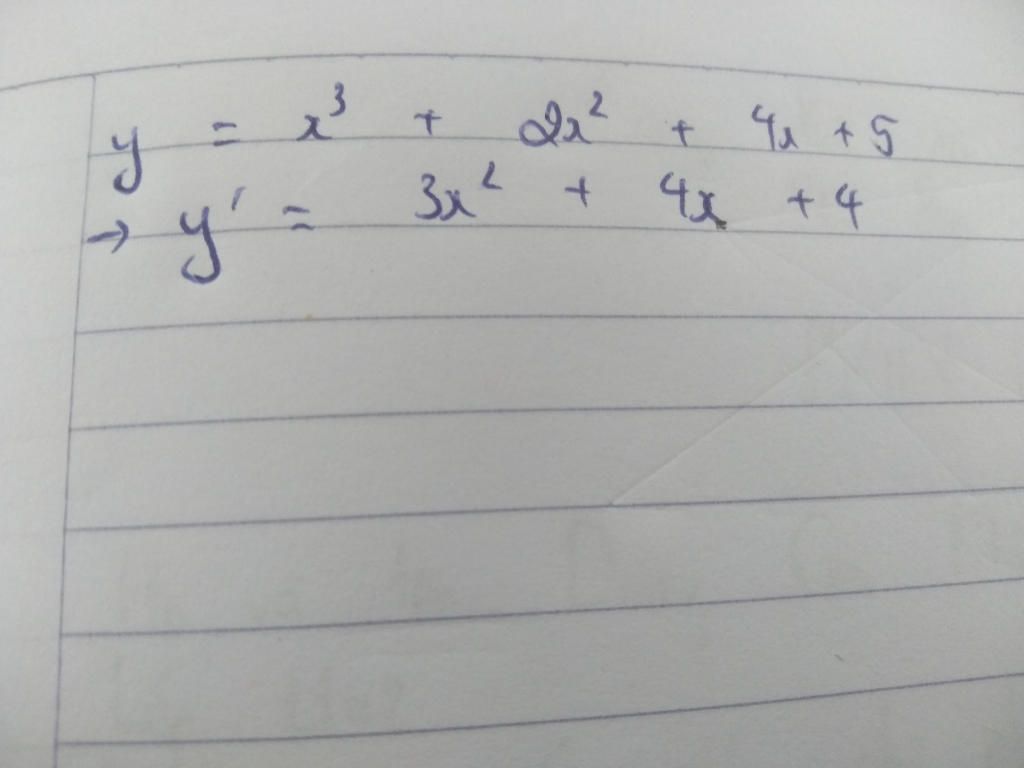 y = x³ + 2x² + 4x + 5
→ y' = 3x² + 4x + 4